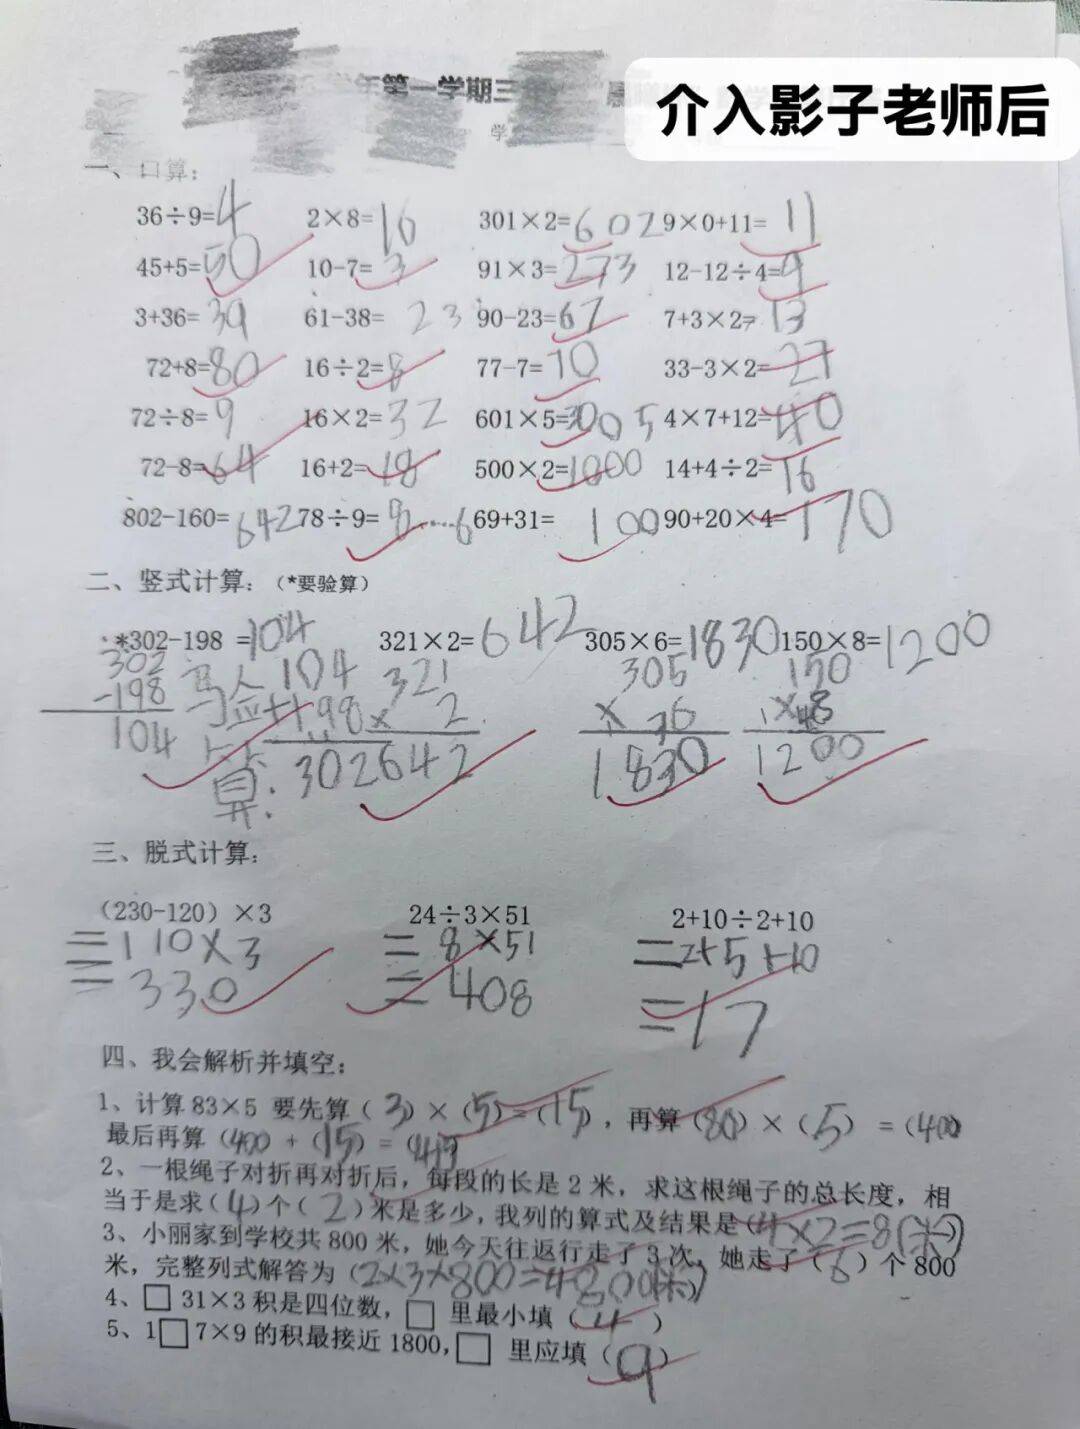 学年第一学期三
介入影子老师后
学
一、口算：
36÷9=4 2×8=16 301×2=602 9×0+11=11
45+5=50 10-7=3 91×3=273 12-12÷4=9
3+36=39 61-38=23 90-23=67 7+3×2=13
72+8=80 16÷2=8 77-7=70 33-3×2=27
72÷8=9 16×2=32 601×5=3005 4×7+12=40
72-8=64 16+2=18 500×2=1000 14+4÷2=16
802-160=642 78÷9=8……6 69+31=100 90+20×4=170
二、竖式计算：（*要验算）
*302-198 =104 321×2=642 305×6=1830 150×8=1200
302 验算： 104 321 305 150
-198 +198 × 2 × 6 × 8
104 302 642 1830 1200
三、脱式计算：
（230-120）×3 24÷3×51 2+10÷2+10
=110×3 =8×51 =2+5+10
=330 =408 =17
四、我会解析并填空：
1、计算 83×5 要先算（3）×（5）=（15），再算（80）×（5）=（400
最后再算（400 +（15）=（415
2、一根绳子对折再对折后，每段的长是 2 米，求这根绳子的总长度，相
当于是求（4）个（2）米是多少，我列的算式及结果是（4×2=8(米)）
3、小丽家到学校共 800 米，她今天往返行走了 3 次，她走了（6）个 800
米，完整列式解答为（2×3×800=4800(米)）
4、□31×3 积是四位数，□ 里最小填（4）
5、1□7×9 的积最接近 1800，□ 里应填（9）